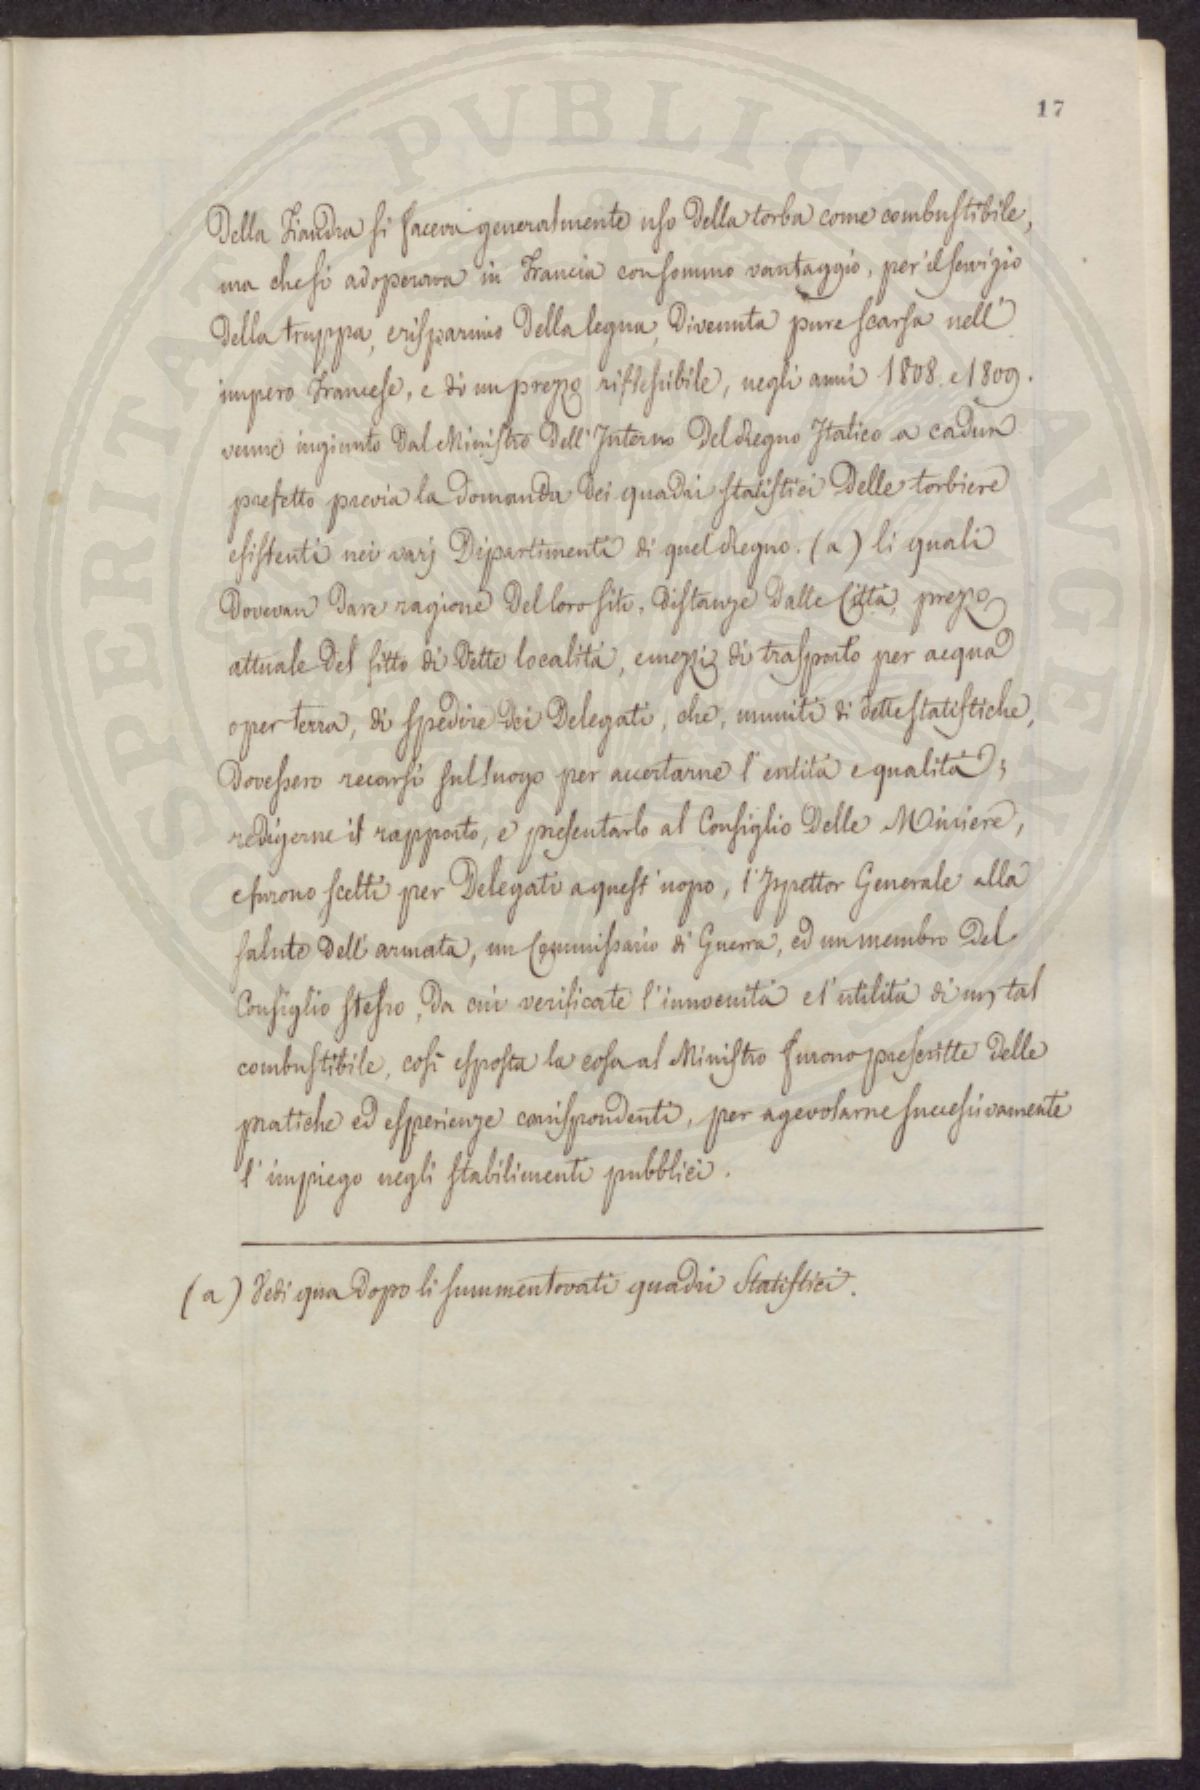 17
della Fiandra si faceva generalmente uso della torba come combustibile,
ma che si adoperava in Francia con sommo vantaggio, per il servigio
della truppa, e risparmio della legna, divenuta pure scarsa nell'
impero Francese, e di un prezzo riflessibile, negli anni 1808. e 1809.
venne ingiunto dal Ministro dell'Interno del Regno Italico a cadun
prefetto previa la domanda dei quadri statistici delle torbiere
esistenti nei varj Dipartimenti di quel Regno. (a) li quali
dovevan dare ragione del loro sito, distanze dalle Città, prezzo
attuale del fitto di dette località, e mezzi di trasporto per acqua
o per terra, di spedire dei Delegati, che, muniti di dette statistiche,
dovessero recarsi sul luogo per accertarne l'entità e qualità;
redigerne il rapporto, e presentarlo al Consiglio delle Miniere,
e furono scelti per Delegati a quest'uopo, l'Ispettor Generale alla
salute dell'armata, un Commissario di Guerra, ed un membro del
Consiglio stesso, da cui verificate l'innocuità e l'utilità di un tal
combustibile, così esposta la cosa al Ministro furono prescritte delle
pratiche ed esperienze corrispondenti, per agevolarne successivamente
l'impiego negli stabilimenti pubblici.
(a) Vedi qua dopo li summentovati quadri Statistici.
SPERITATI PVBLICAE AVGENDAE